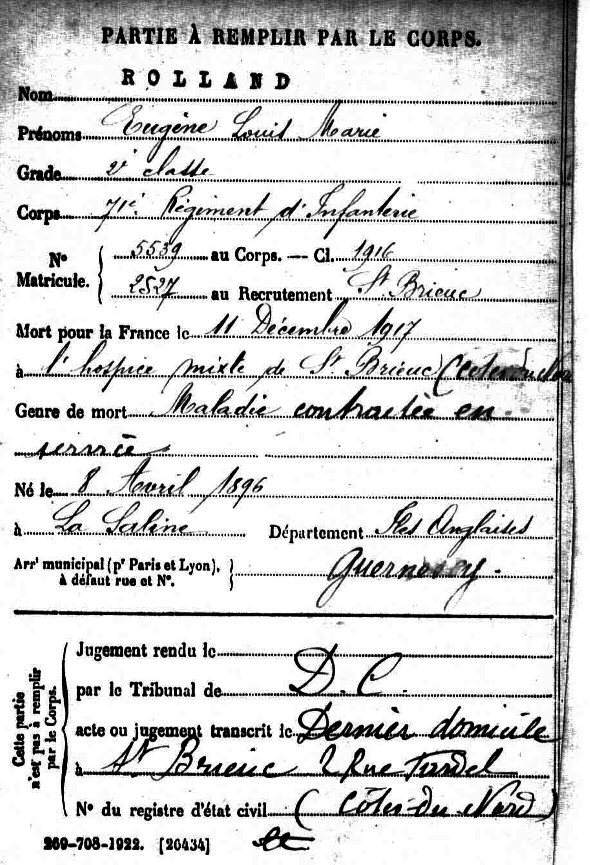 PARTIE À REMPLIR PAR LE CORPS.
Nom ROLLAND
Prénoms Eugène Louis Marie
Grade 2e classe
Corps 71e Régiment d'Infanterie
N° Matricule. 5539 au Corps. — Cl. 1916
2527 au Recrutement St Brieuc
Mort pour la France le 11 Décembre 1917
à l'hospice mixte de St Brieuc (Côtes du Nord
Genre de mort Maladie contractée en
service
Né le 8 Avril 1896
à La Saline Département Iles Anglaises
Arrt municipal (pr Paris et Lyon), à défaut rue et N°. Guernesey.
Cette partie n'est pas à remplir par le Corps.
Jugement rendu le
par le Tribunal de D. C.
acte ou jugement transcrit le Dernier domicile
à St Brieuc 2 Rue Tardel
N° du registre d'état civil (Côtes-du Nord)
269-708-1922. [26434]